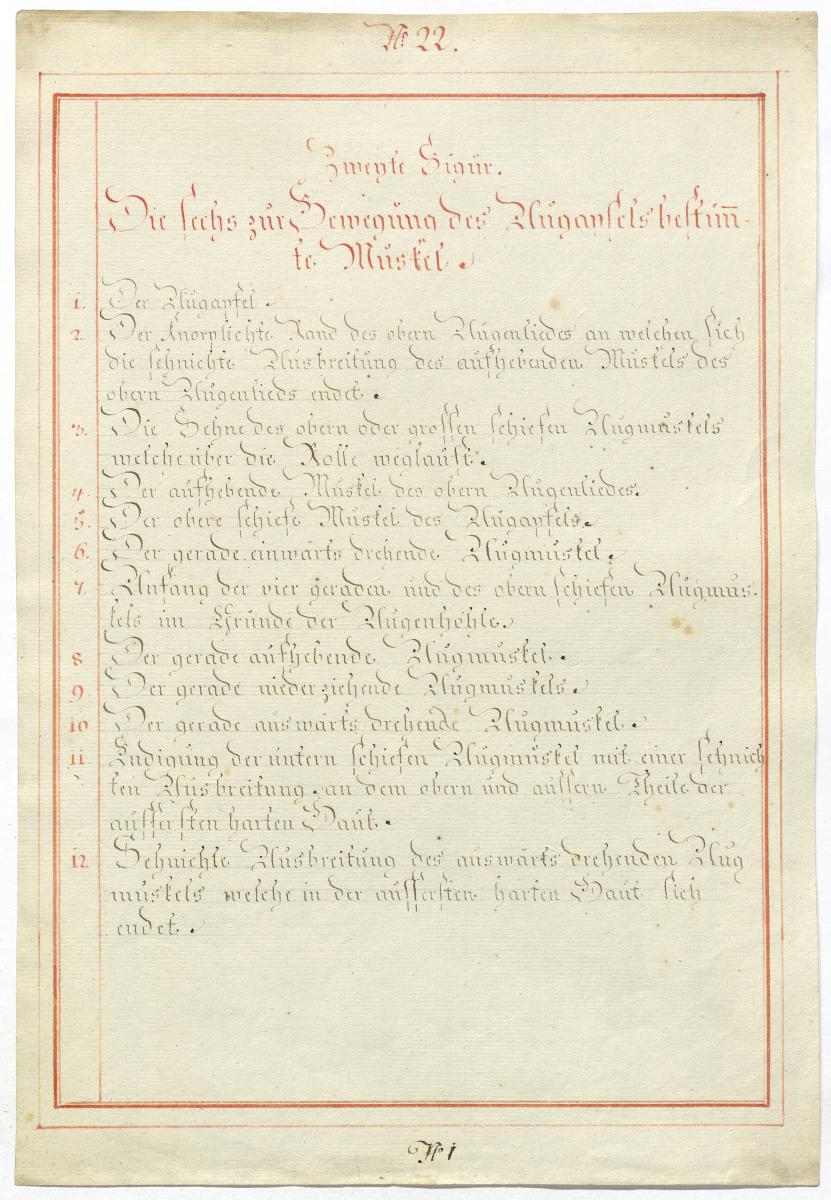 № 22.
Zweyte Figur.
Die sechs zur Bewegung des Augapfels bestim̅-
te Muskel.
1. Der Augapfel.
2. Der knorplichte Rand des obern Augenliedes an welchen sich
die sehnichte Ausbreitung des aufhebenden Muskels des
obern Augenlieds endet.
3. Die Sehne des obern oder grossen schiefen Augmuskels
welche über die Rolle weglauft.
4. Der aufhebende Muskel des obern Augenliedes.
5. Der obere schiefe Muskel des Augapfels.
6. Der gerade einwärts drehende Augmuskel.
7. Anfang der vier geraden und des obern schiefen Augmus-
kels im Grunde der Augenhöhle.
8. Der gerade aufhebende Augmuskel.
9. Der gerade niederziehende Augmuskels.
10. Der gerade auswärts drehende Augmuskel.
11. Endigung der untern schiefen Augmuskel mit einer sehnich
ten Ausbreitung an dem obern und aussern Theile der
aussersten harten Haut.
12. Sehnichte Ausbreitung des auswärts drehenden Aug
muskels welche in der aussersten harten Haut sich
endet.
№ 1